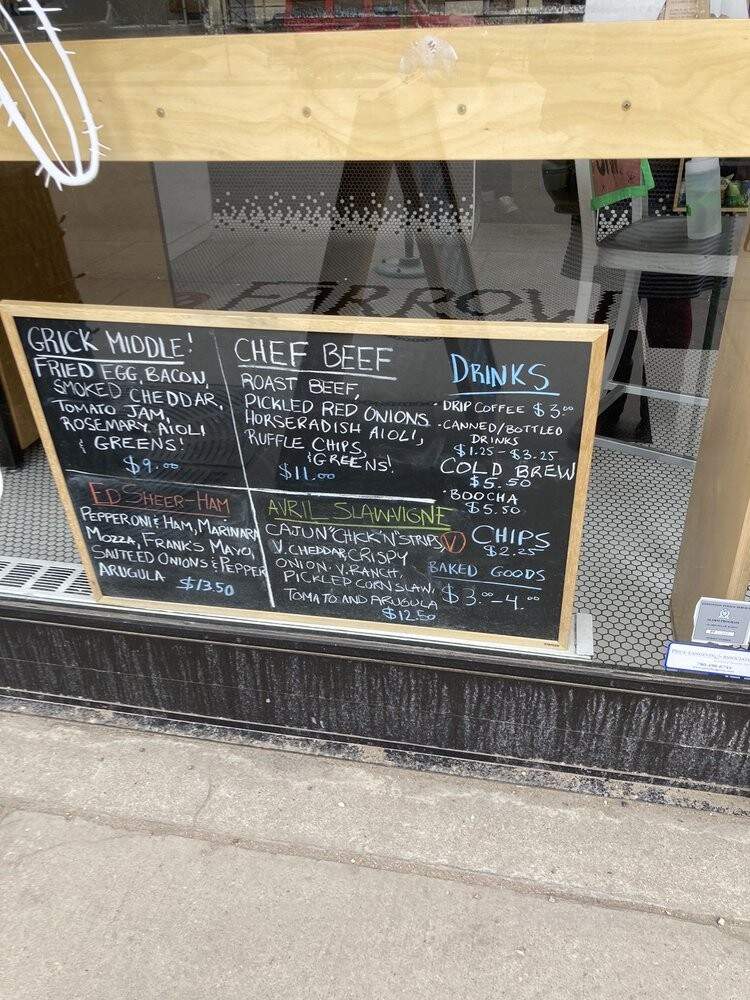 FARROW
GRICK MIDDLE!
FRIED EGG, BACON,
SMOKED CHEDDAR,
TOMATO JAM,
ROSEMARY AIOLI
& GREENS!
$9.00
CHEF BEEF
ROAST BEEF,
PICKLED RED ONIONS
HORSERADISH AIOLI,
RUFFLE CHIPS,
& GREENS!
$11.00
DRINKS
· DRIP COFFEE $3.00
· CANNED/BOTTLED
DRINKS
$1.25 - $3.25
COLD BREW
$5.50
· BOOCHA
$5.50
ED SHEER-HAM
PEPPERONI & HAM, MARINARA
MOZZA, FRANK'S MAYO,
SAUTEED ONIONS & PEPPER
ARUGULA $13.50
AVRIL SLAWVIGNE
CAJUN "CHICK'N" STRIPS, V
V. CHEDDAR, CRISPY
ONION. V. RANCH,
PICKLED CORN SLAW,
TOMATO AND ARUGULA
$12.50
CHIPS
$2.25
BAKED GOODS
$3.00 - 4.00